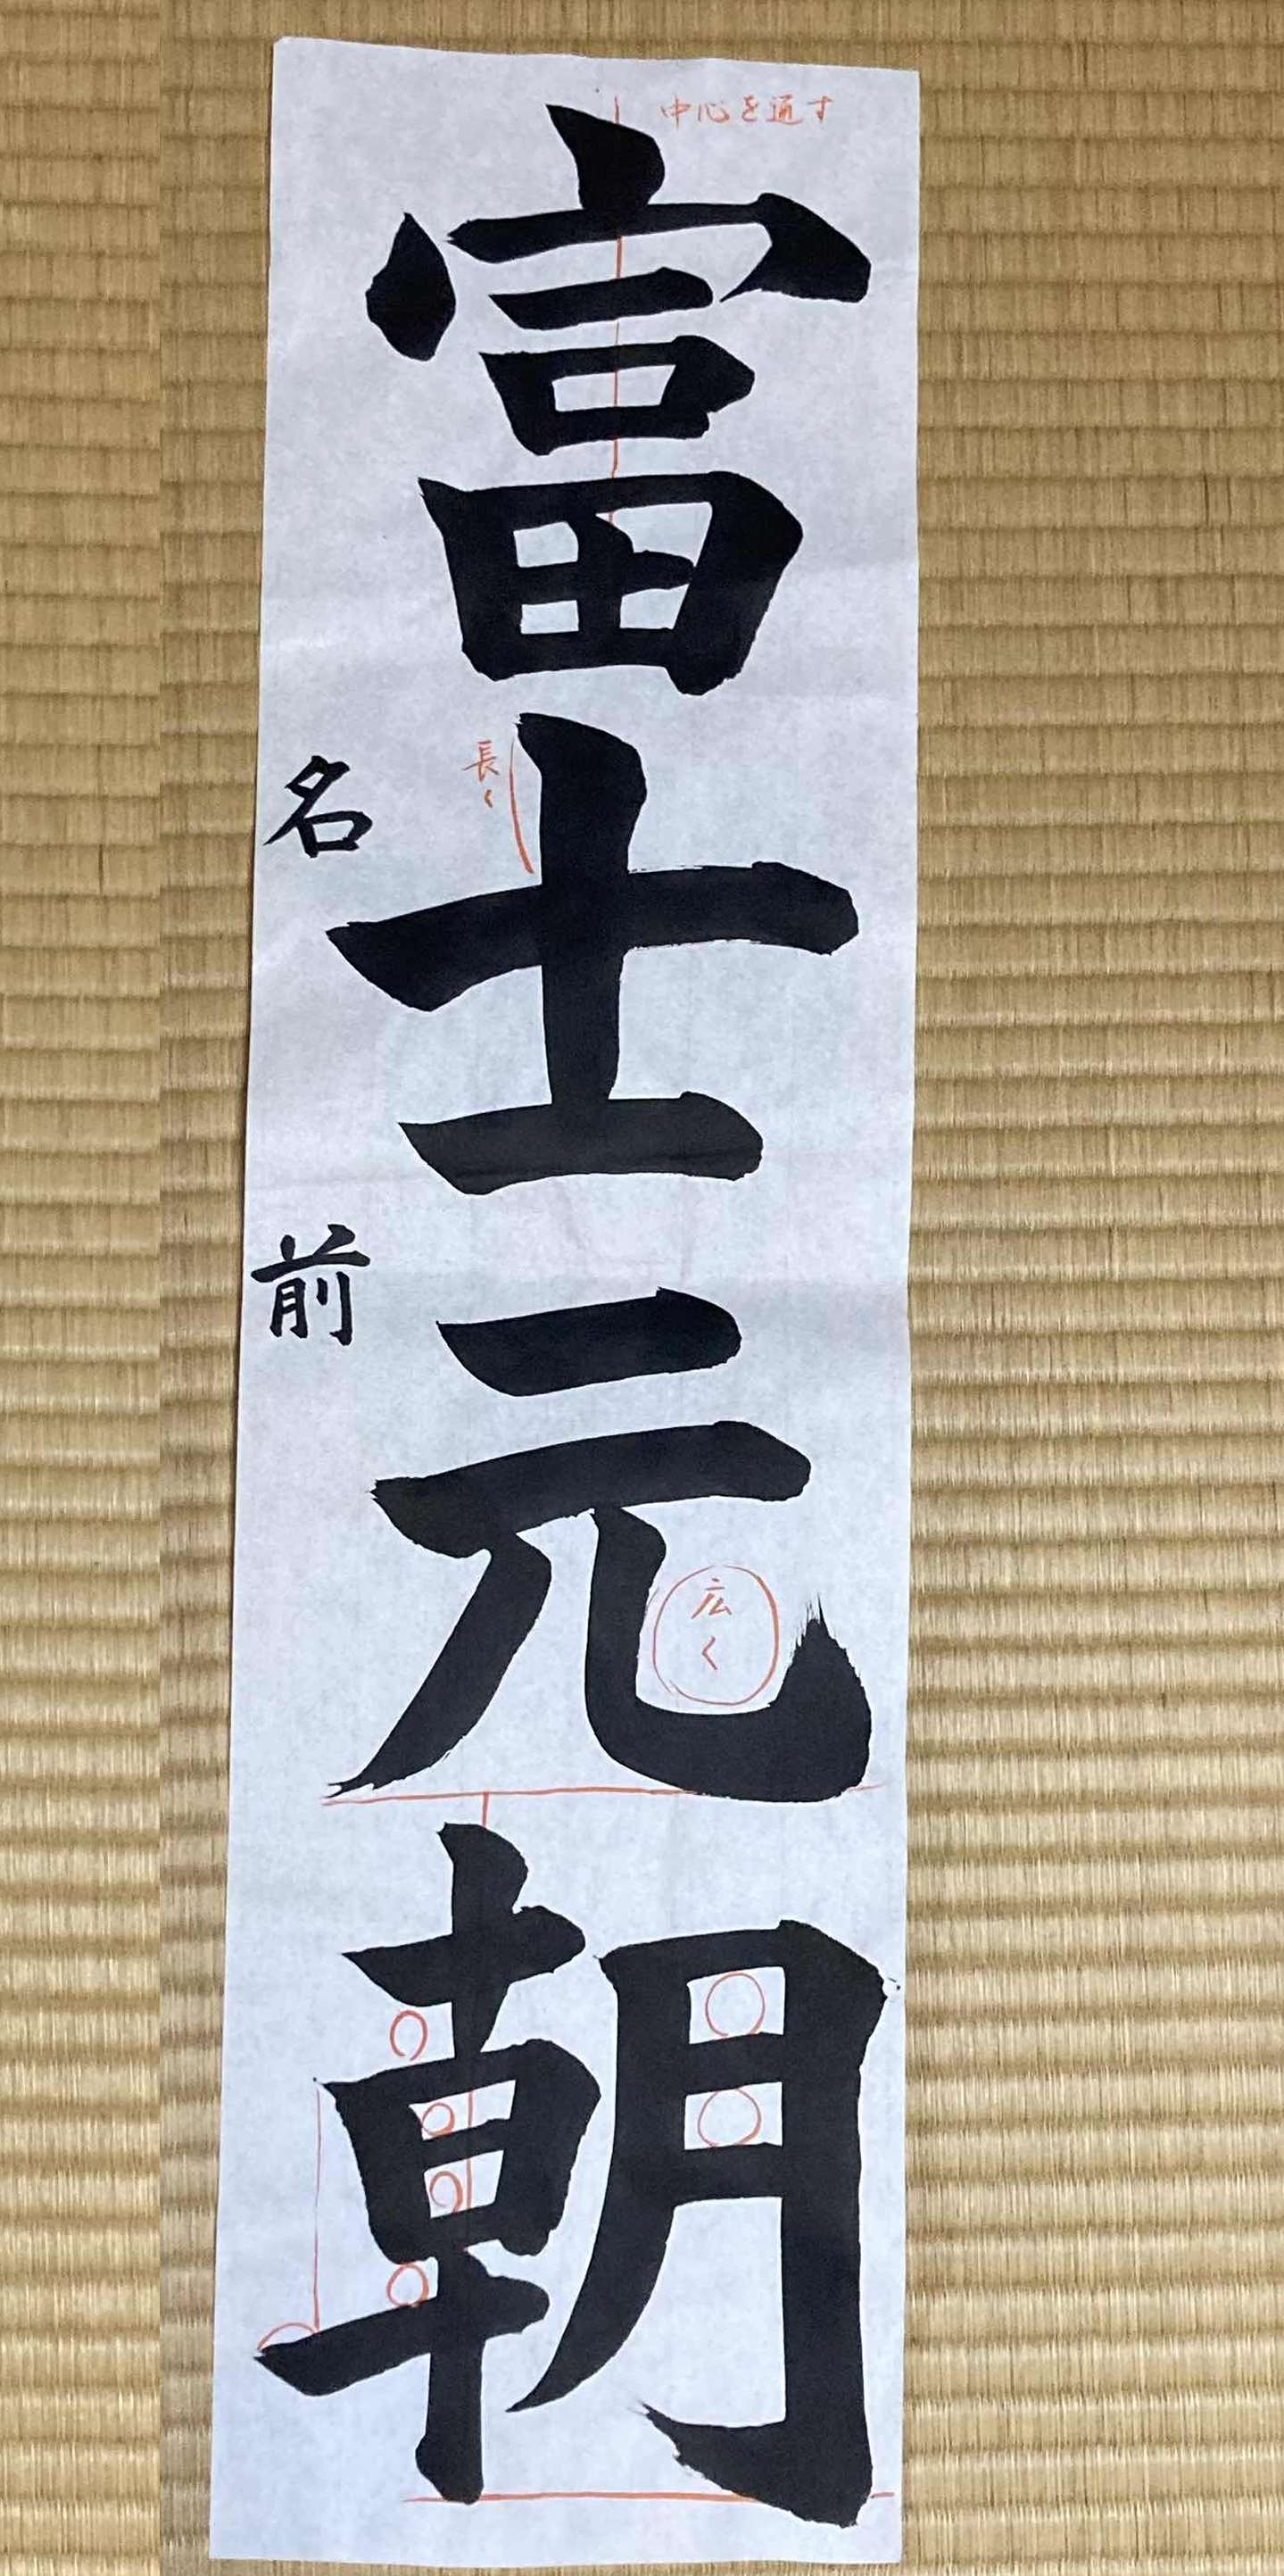 中心を通す
富士元朝
長く
広く
名前